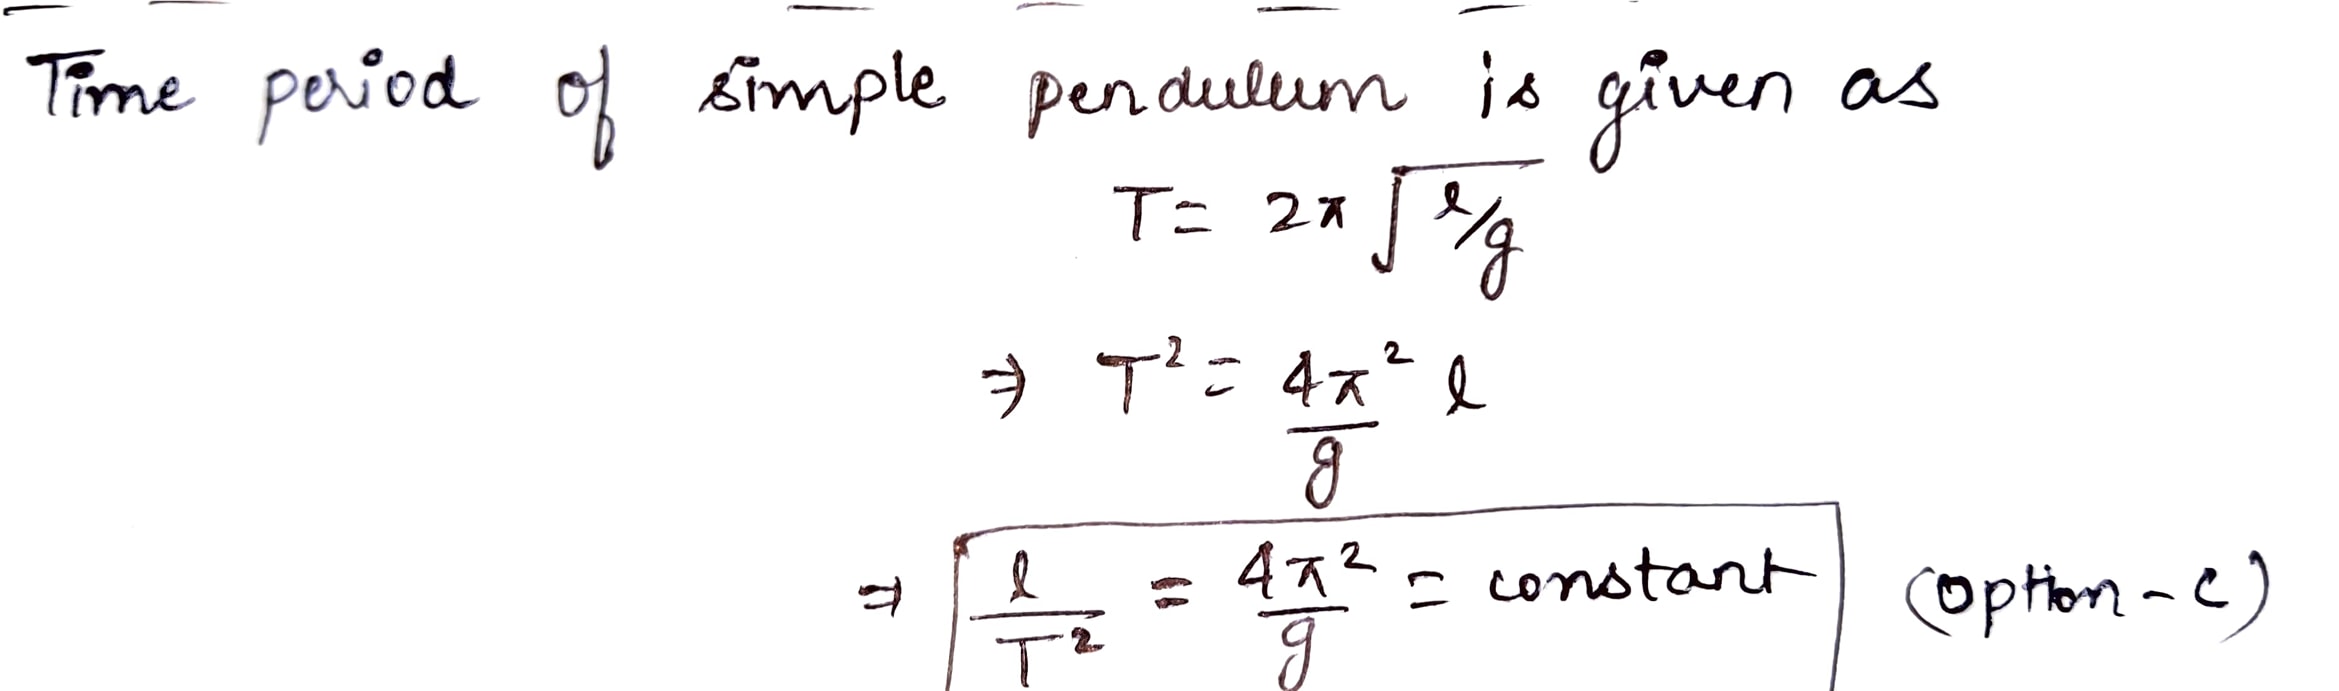 Time period of simple pendulum is given as
T = 2π √(l/g)
⇒ T² = 4π²/g l
⇒ l/T² = 4π²/g = constant (option-c)